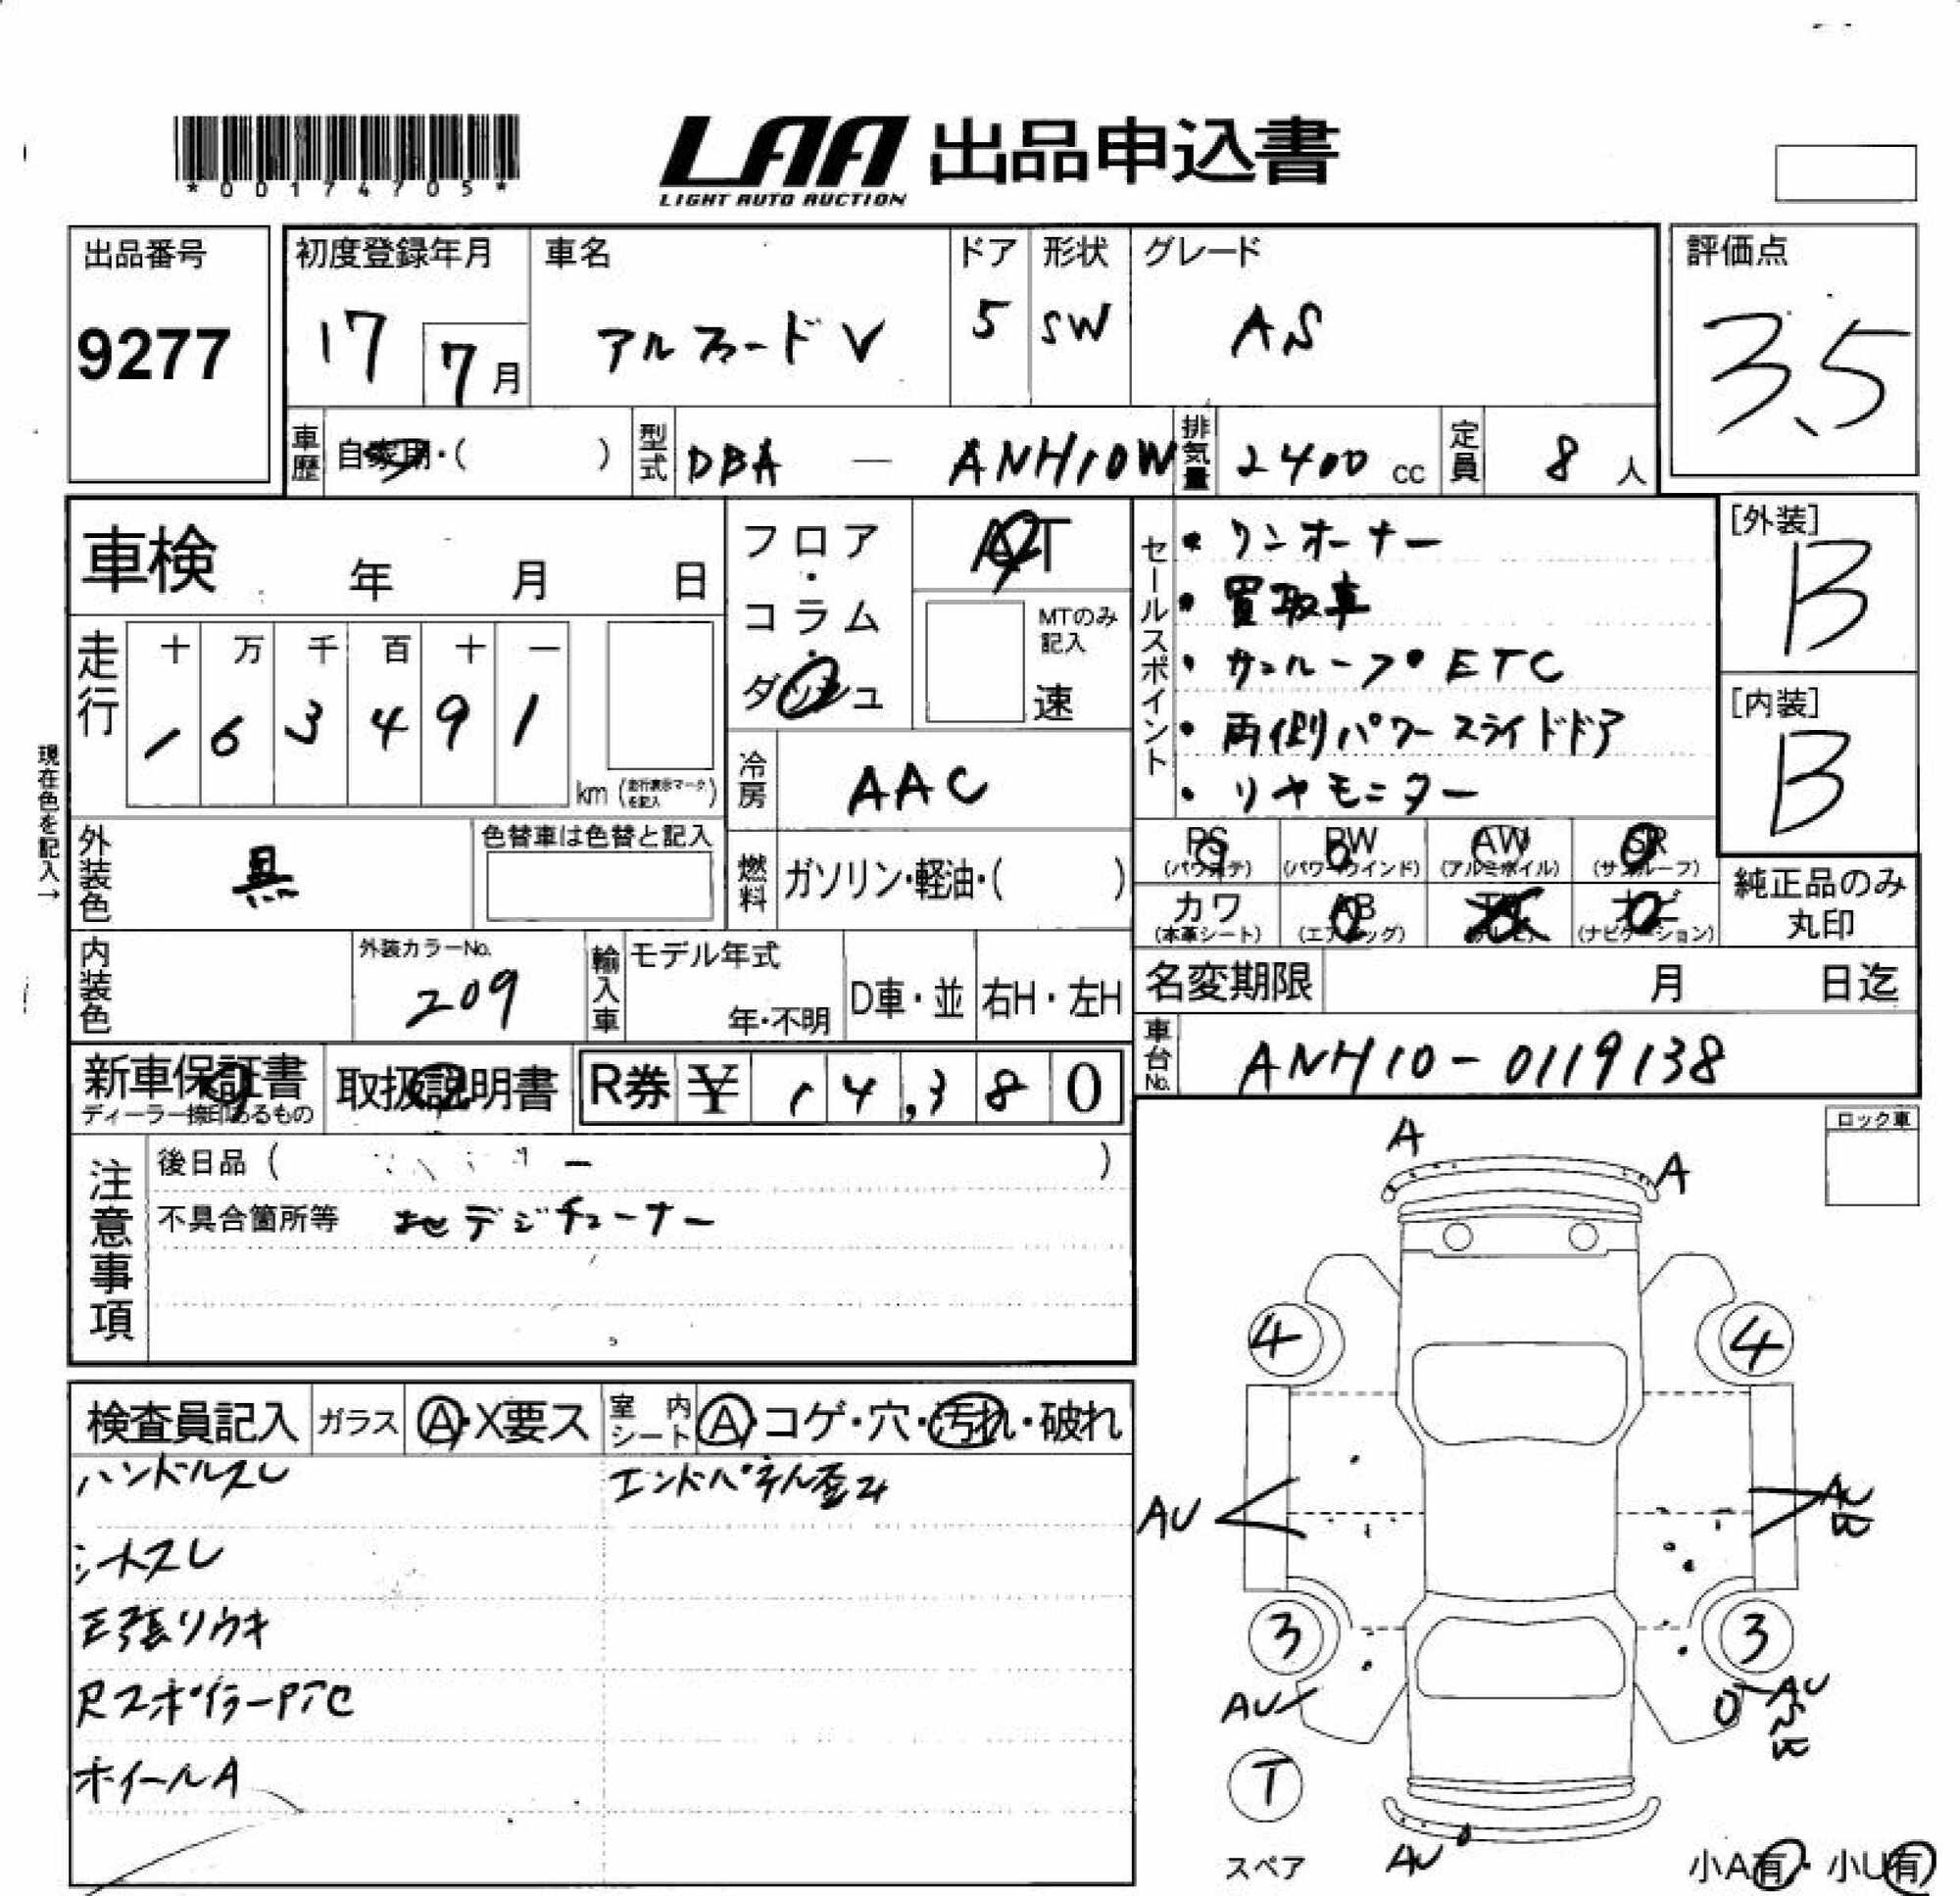 *00174705*
LAA 出品申込書
LIGHT AUTO AUCTION
出品番号
9277
初度登録年月
17 7月
車名
アルファードV
ドア
5
形状
SW
グレード
AS
評価点
3.5
車歴 自家用・( )
型式 DBA — ANH10W
排気量 2400 cc
定員 8 人
車検 年 月 日
フロア・コラム・ダッシュ
AT
MTのみ記入
速
セールスポイント
・ワンオーナー
・買取車
・サンルーフ・ETC
・両側パワースライドドア
・リヤモニター
[外装]
B
[内装]
B
走行
十 万 千 百 十 一
1 6 3 4 9 1
km (走行表示マークを記入)
現在色を記入→
冷房 AAC
外装色 黒
色替車は色替と記入
燃料 ガソリン・軽油・( )
PS (パワステ)
PW (パワーウインド)
AW (アルミホイル)
SR (サンルーフ)
カワ (本革シート)
AB (エアバッグ)
ナビ (ナビゲーション)
純正品のみ丸印
内装色
外装カラーNo.
209
輸入車
モデル年式
年・不明
D車・並
右H・左H
名変期限 月 日迄
車台No. ANH10-0119138
新車保証書
ディーラー捺印あるもの
取扱説明書
R券 ¥ 14,380
注意事項
後日品 ( )
不具合箇所等 地デジチューナー
ロック車
検査員記入
ガラス A・X要ス
室内シート A・コゲ・穴・汚れ・破れ
ハンドルスレ
エンドパネル歪み
シートスレ
天張リウキ
Rスポイラー
ホイールA
A
A
4
4
AU
AU
3
3
AU
AU
T
スペア
AU
小A有・小U有